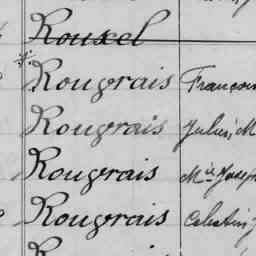 Rouxel
Rougrais François
Rougrais Jules, M
Rougrais Mie Josep
Rougrais Célestin, J